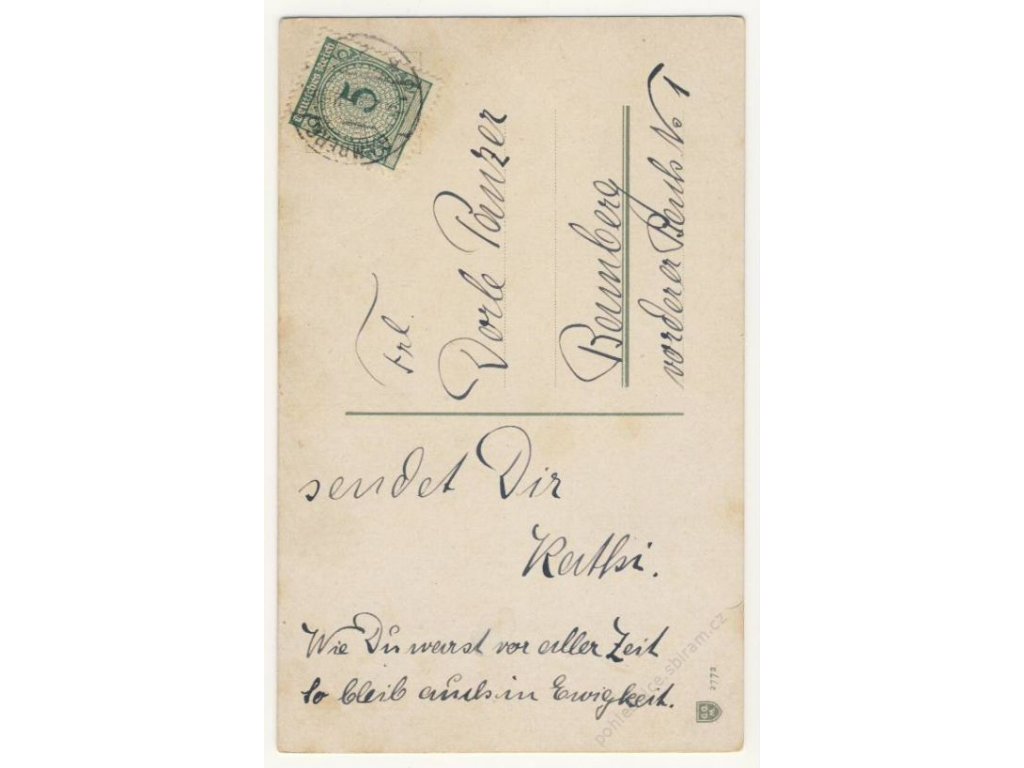 Deutsches Reich
5
BAMBERG
Frl.
Dorle Panzer
Bamberg
vorderer Bach No 1
sendet Dir
Kathi.
Wie Du warst vor aller Zeit
So bleib auch in Ewigkeit.
2773
pohlednice.sbiram.cz